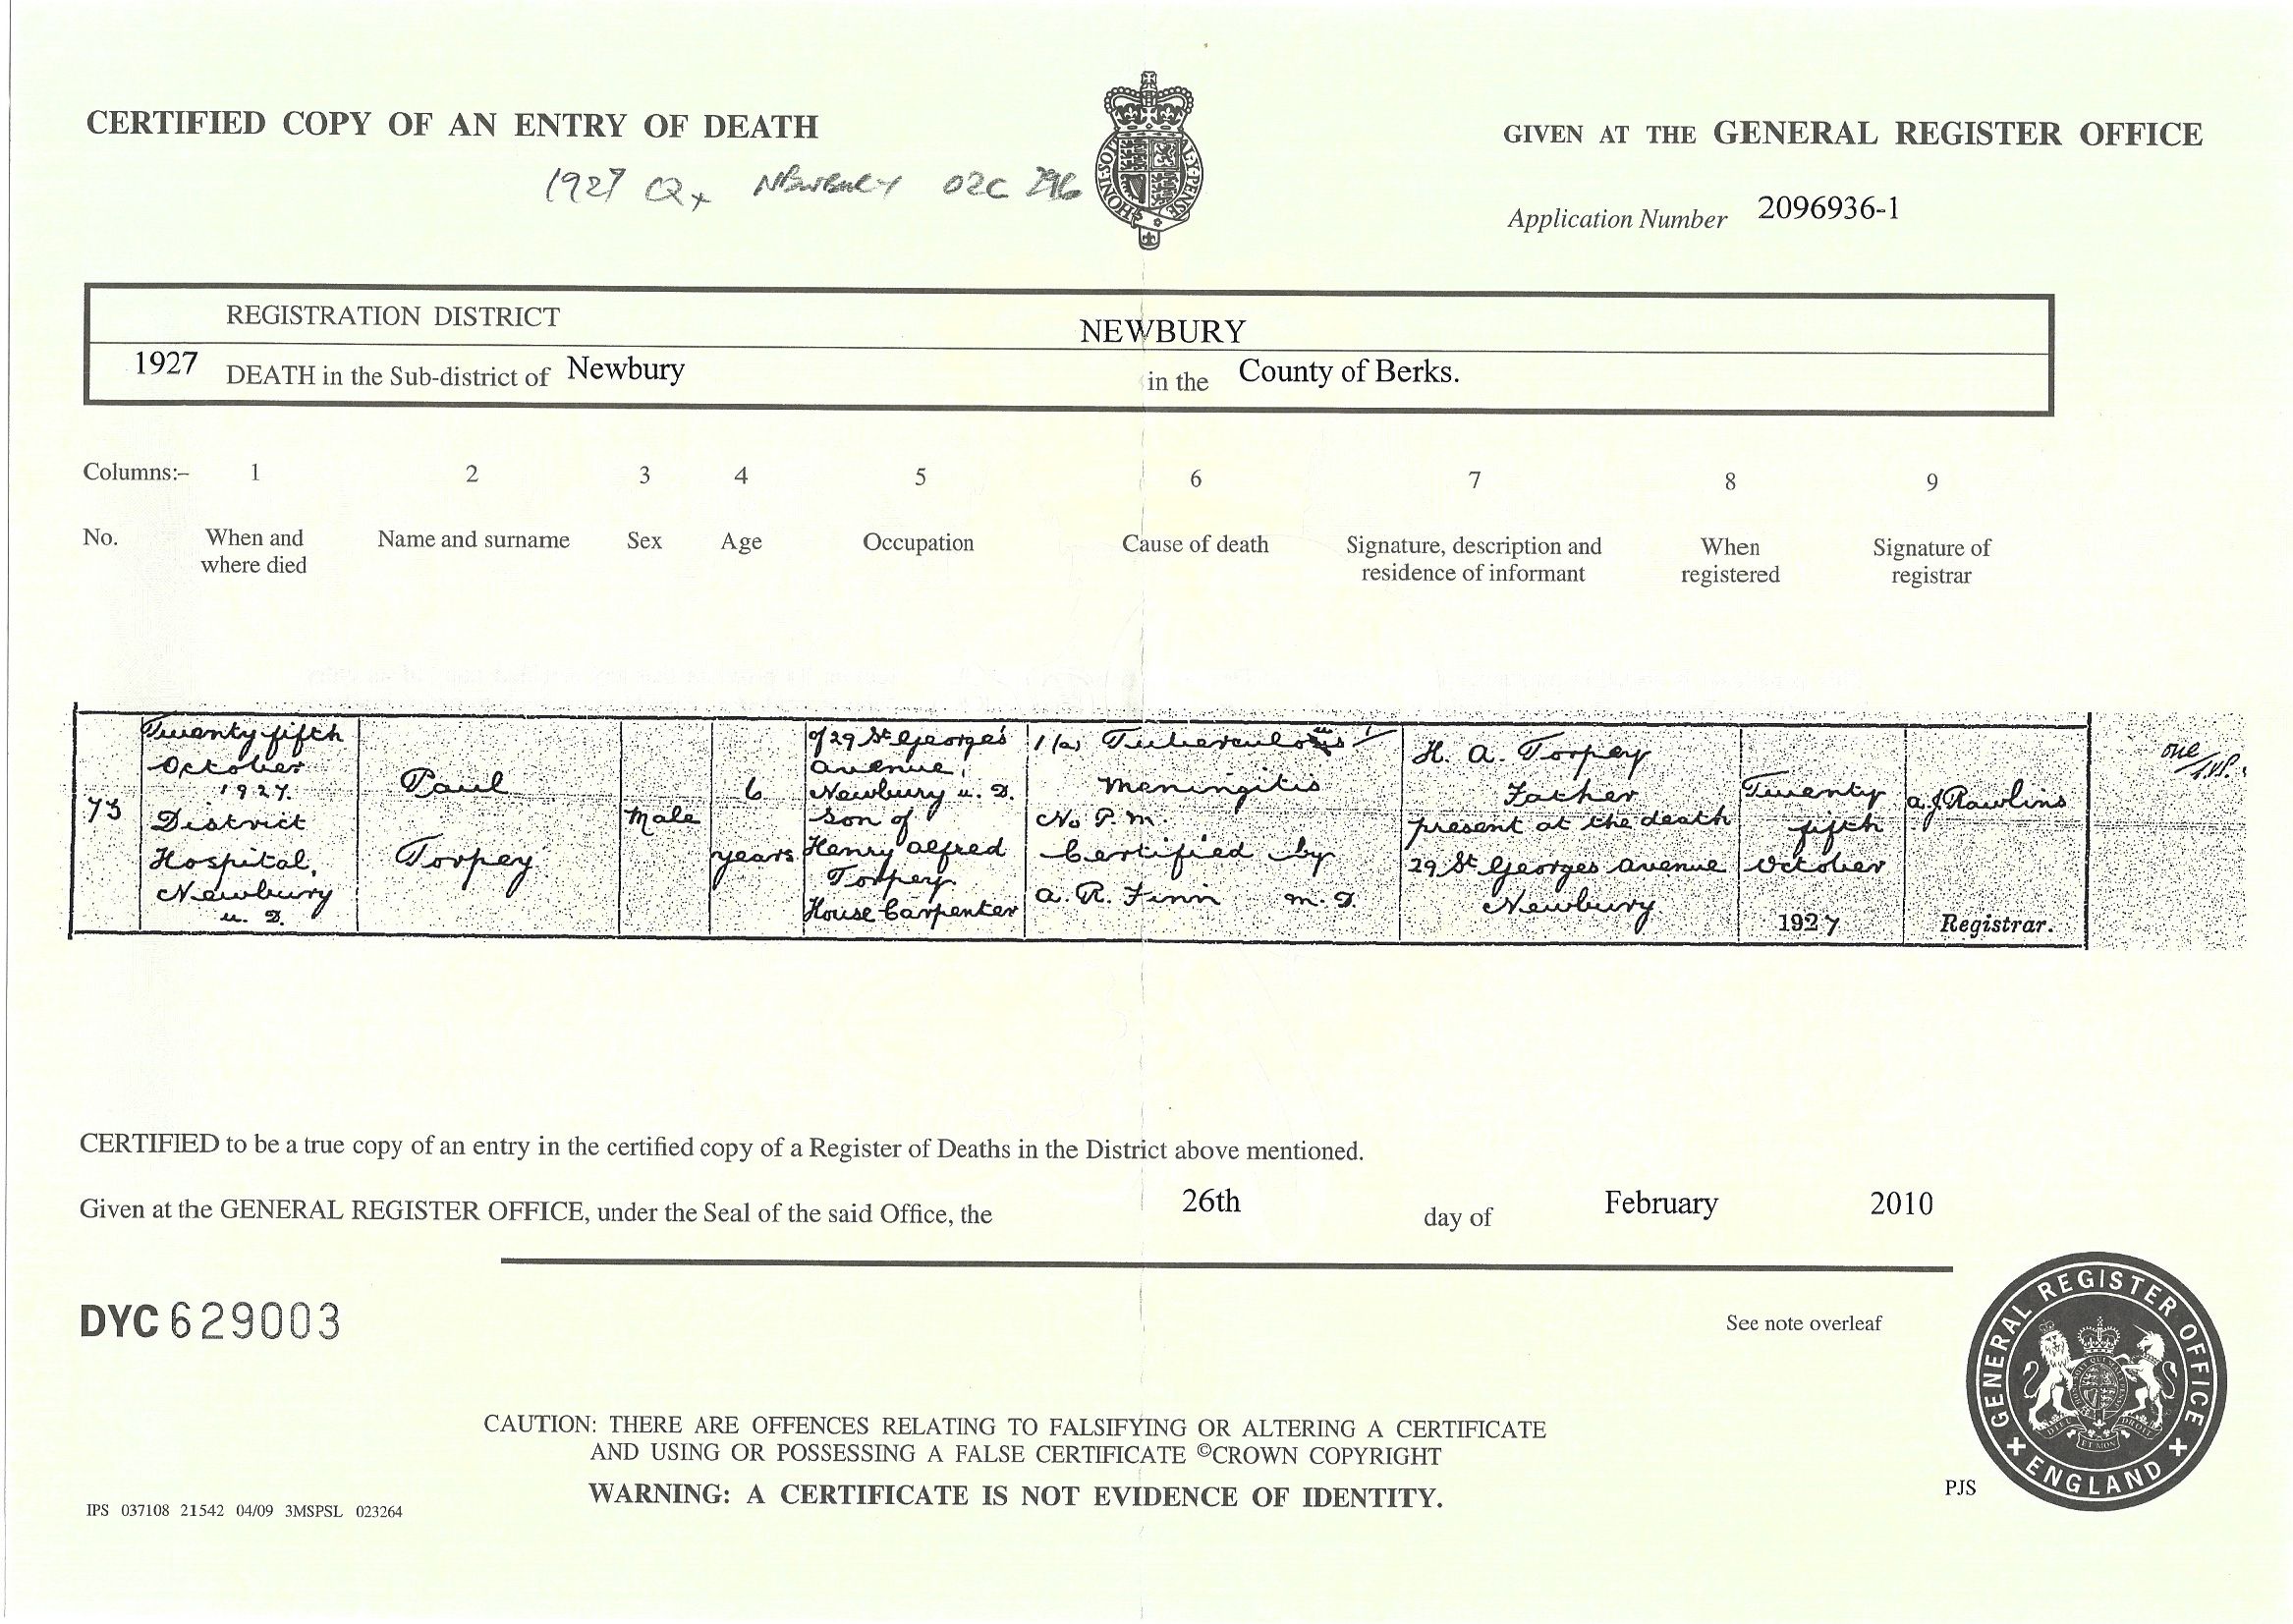 CERTIFIED COPY OF AN ENTRY OF DEATH
GIVEN AT THE GENERAL REGISTER OFFICE
1927 Newbury 02C
Application Number 2096936-1
REGISTRATION DISTRICT NEWBURY
1927 DEATH in the Sub-district of Newbury in the County of Berks.
Columns:- 1 2 3 4 5 6 7 8 9
No. When and where died Name and surname Sex Age Occupation Cause of death Signature, description and residence of informant When registered Signature of registrar
73
Twenty fifth
October
1927.
District
Hospital,
Newbury
u. D.
Paul
Torpey
Male
6
years
of 29 St George's
Avenue,
Newbury u. D.
Son of
Henry Alfred
Torpey
House Carpenter
1 (a) Tuberculous
Meningitis
No P. m.
Certified by
A. R. Finn m. D.
H. A. Torpey
Father
present at the death
29 St Georges Avenue
Newbury
Twenty
fifth
October
1927
A. J. Rawlins
Registrar.
one
CERTIFIED to be a true copy of an entry in the certified copy of a Register of Deaths in the District above mentioned.
Given at the GENERAL REGISTER OFFICE, under the Seal of the said Office, the 26th day of February 2010
DYC 629003
See note overleaf
CAUTION: THERE ARE OFFENCES RELATING TO FALSIFYING OR ALTERING A CERTIFICATE
AND USING OR POSSESSING A FALSE CERTIFICATE ©CROWN COPYRIGHT
WARNING: A CERTIFICATE IS NOT EVIDENCE OF IDENTITY.
IPS 037108 21542 04/09 3MSPSL 023264
PJS
GENERAL REGISTER OFFICE
ENGLAND